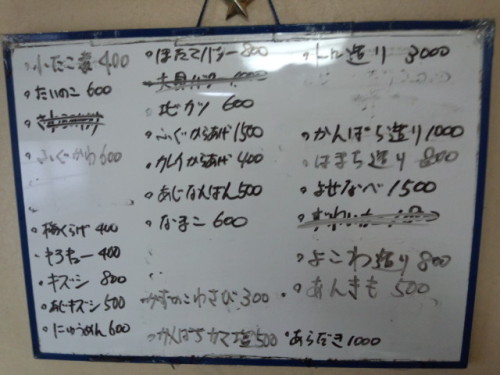 小たこ煮 400
たいのこ 600
ふぐかわ 600
梅くらげ 400
キズシ 800
あじキズシ 500
にゅうめん 600
ほたてバター 800
ヒカツ 600
ふぐからあげ 1500
カレイからあげ 400
あじなんばん 500
なまこ 600
かずのこわさび 300
かんぱちカマ塩 500
トロ造り 3000
かんぱち造り 1000
はまち造り 800
よせなべ 1500
よこわ造り 800
あんきも 500
あらだき 1000